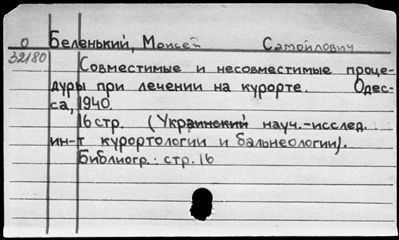 О Беленький, Моисей Самойлович
32180
Совместимые и несовместимые проце-
дуры при лечении на курорте. Одес-
са, 1940.
16 стр. (Украинский науч.-исслед.
ин-т курортологии и бальнеологии).
Библиогр.: стр. 16